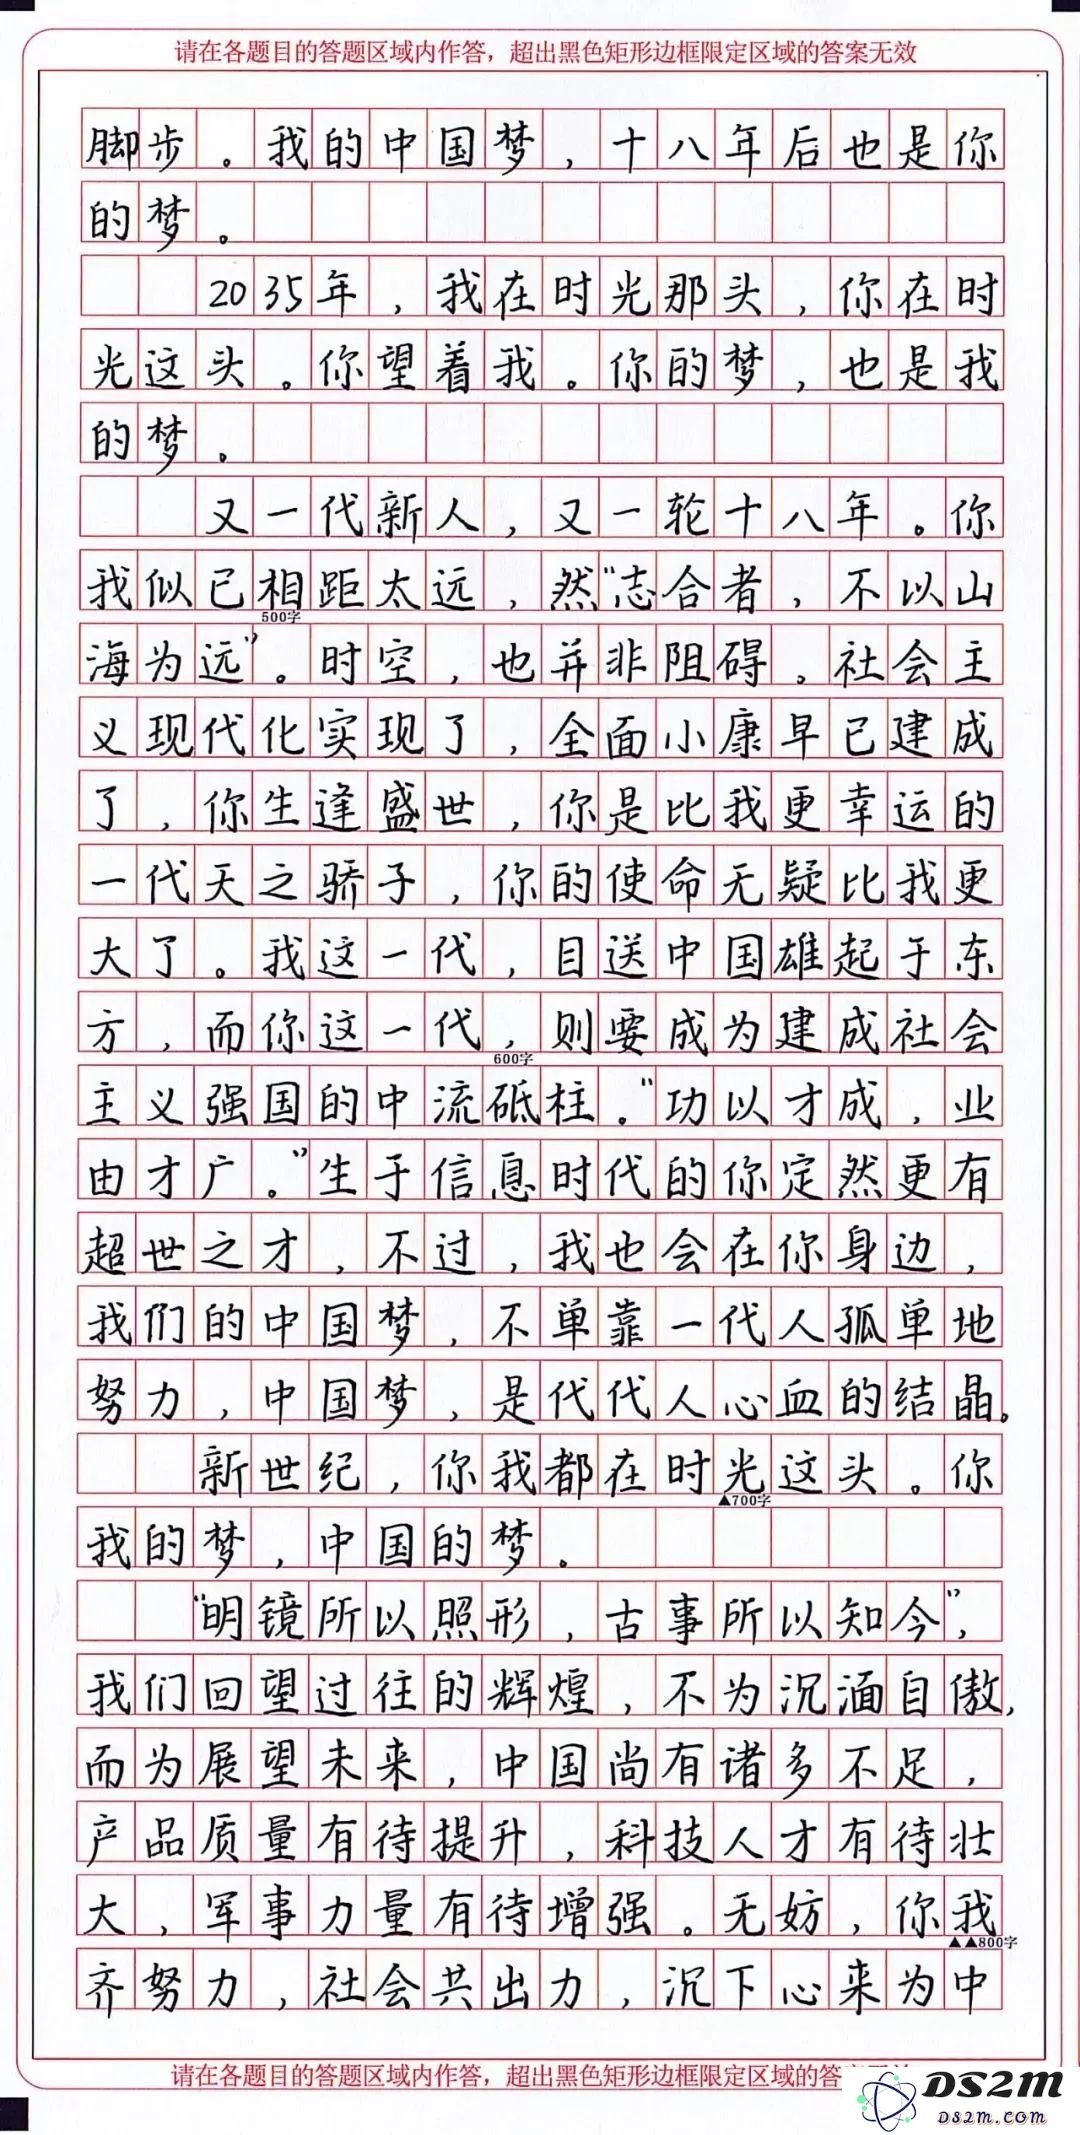 请在各题目的答题区域内作答，超出黑色矩形边框限定区域的答案无效
脚步。我的中国梦，十八年后也是你
的梦。
2035年，我在时光那头，你在时
光这头。你望着我。你的梦，也是我
的梦。
又一代新人，又一轮十八年。你
我似已相距太远，然“志合者，不以山
500字
海为远”。时空，也并非阻碍。社会主
义现代化实现了，全面小康早已建成
了，你生逢盛世，你是比我更幸运的
一代天之骄子，你的使命无疑比我更
大了。我这一代，目送中国雄起于东
方，而你这一代，则要成为建成社会
600字
主义强国的中流砥柱。“功以才成，业
由才广。”生于信息时代的你定然更有
超世之才，不过，我也会在你身边，
我们的中国梦，不单靠一代人孤单地
努力，中国梦，是代代人心血的结晶。
新世纪，你我都在时光这头。你
▲700字
我的梦，中国的梦。
“明镜所以照形，古事所以知今”，
我们回望过往的辉煌，不为沉湎自傲，
而为展望未来，中国尚有诸多不足，
产品质量有待提升，科技人才有待壮
大，军事力量有待增强。无妨，你我
▲▲800字
齐努力，社会共出力，沉下心来为中
请在各题目的答题区域内作答，超出黑色矩形边框限定区域的答
DS2M
DS2M.COM